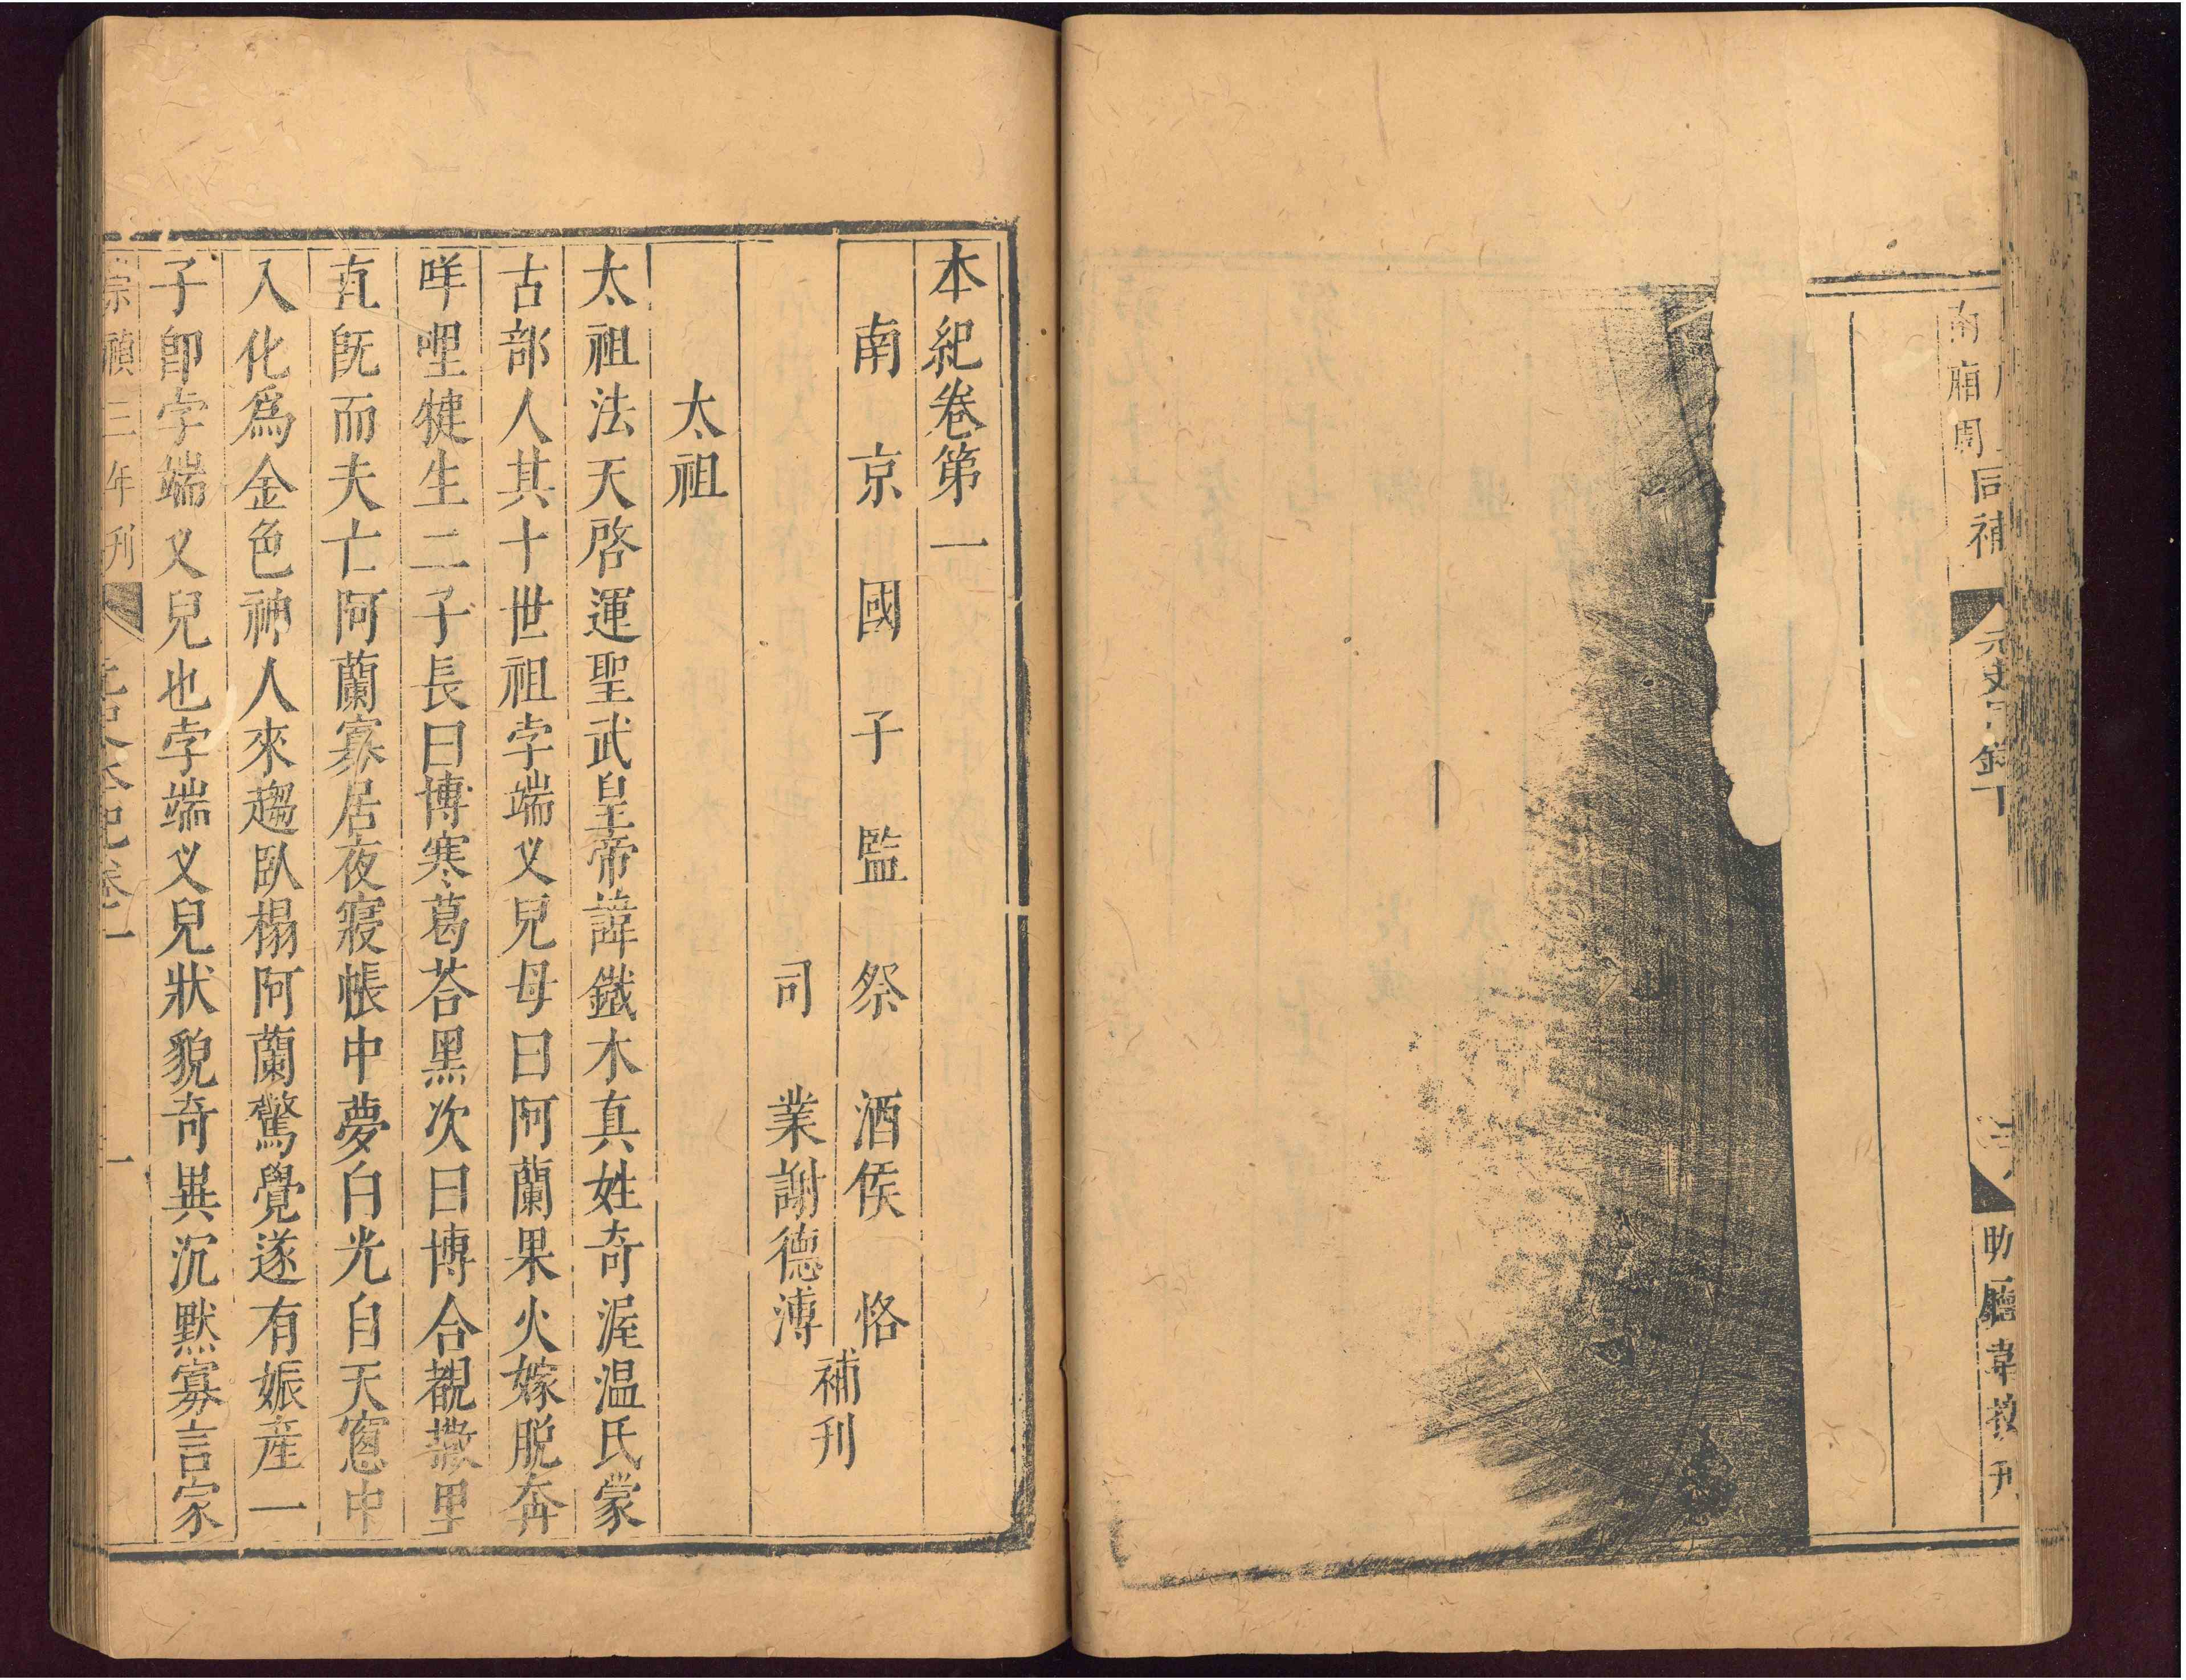 南廂周
同補
元史目錄下
助廳韋教刊
本紀卷第一
南京國子監祭酒侯恪
司業謝德溥
補刊
太祖
太祖法天啓運聖武皇帝諱鐵木真姓奇渥温氏蒙
古部人其十世祖孛端义兒母曰阿蘭果火嫁脱奔
咩哩犍生二子長曰博寒葛荅黑次曰博合覩撒里
直既而夫亡阿蘭寡居夜寢帳中夢白光自天窻中
入化爲金色神人來趨臥榻阿蘭驚覺遂有娠産一
子卽孛端义兒也孛端义兒狀貌奇異沉默寡言家
崇禎三年刊
元史本紀卷一
一